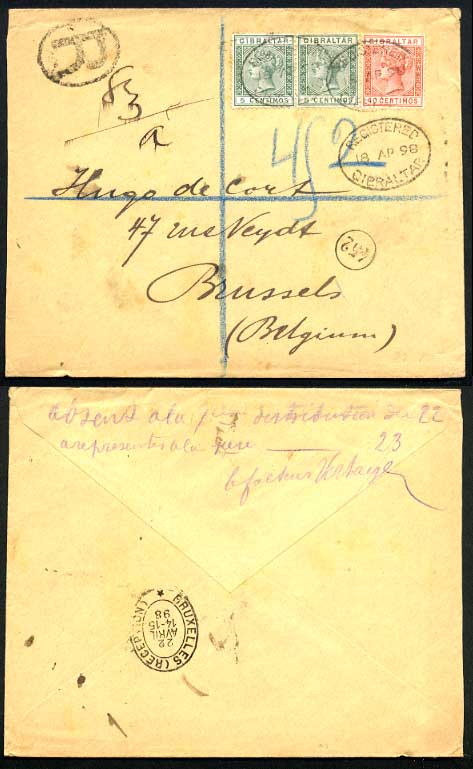 R
GIBRALTAR GIBRALTAR GIBRALTAR
5 CENTIMOS 5 CENTIMOS 40 CENTIMOS
REGISTERED
18 AP 98
GIBRALTAR
Hugo de Cort
47 rue Veydt
Brussels
(Belgium)
absent a la distribution du 22
a representer a la 23
le facteur
BRUXELLES (RECEPTION)
22
AVRIL
14-15
98